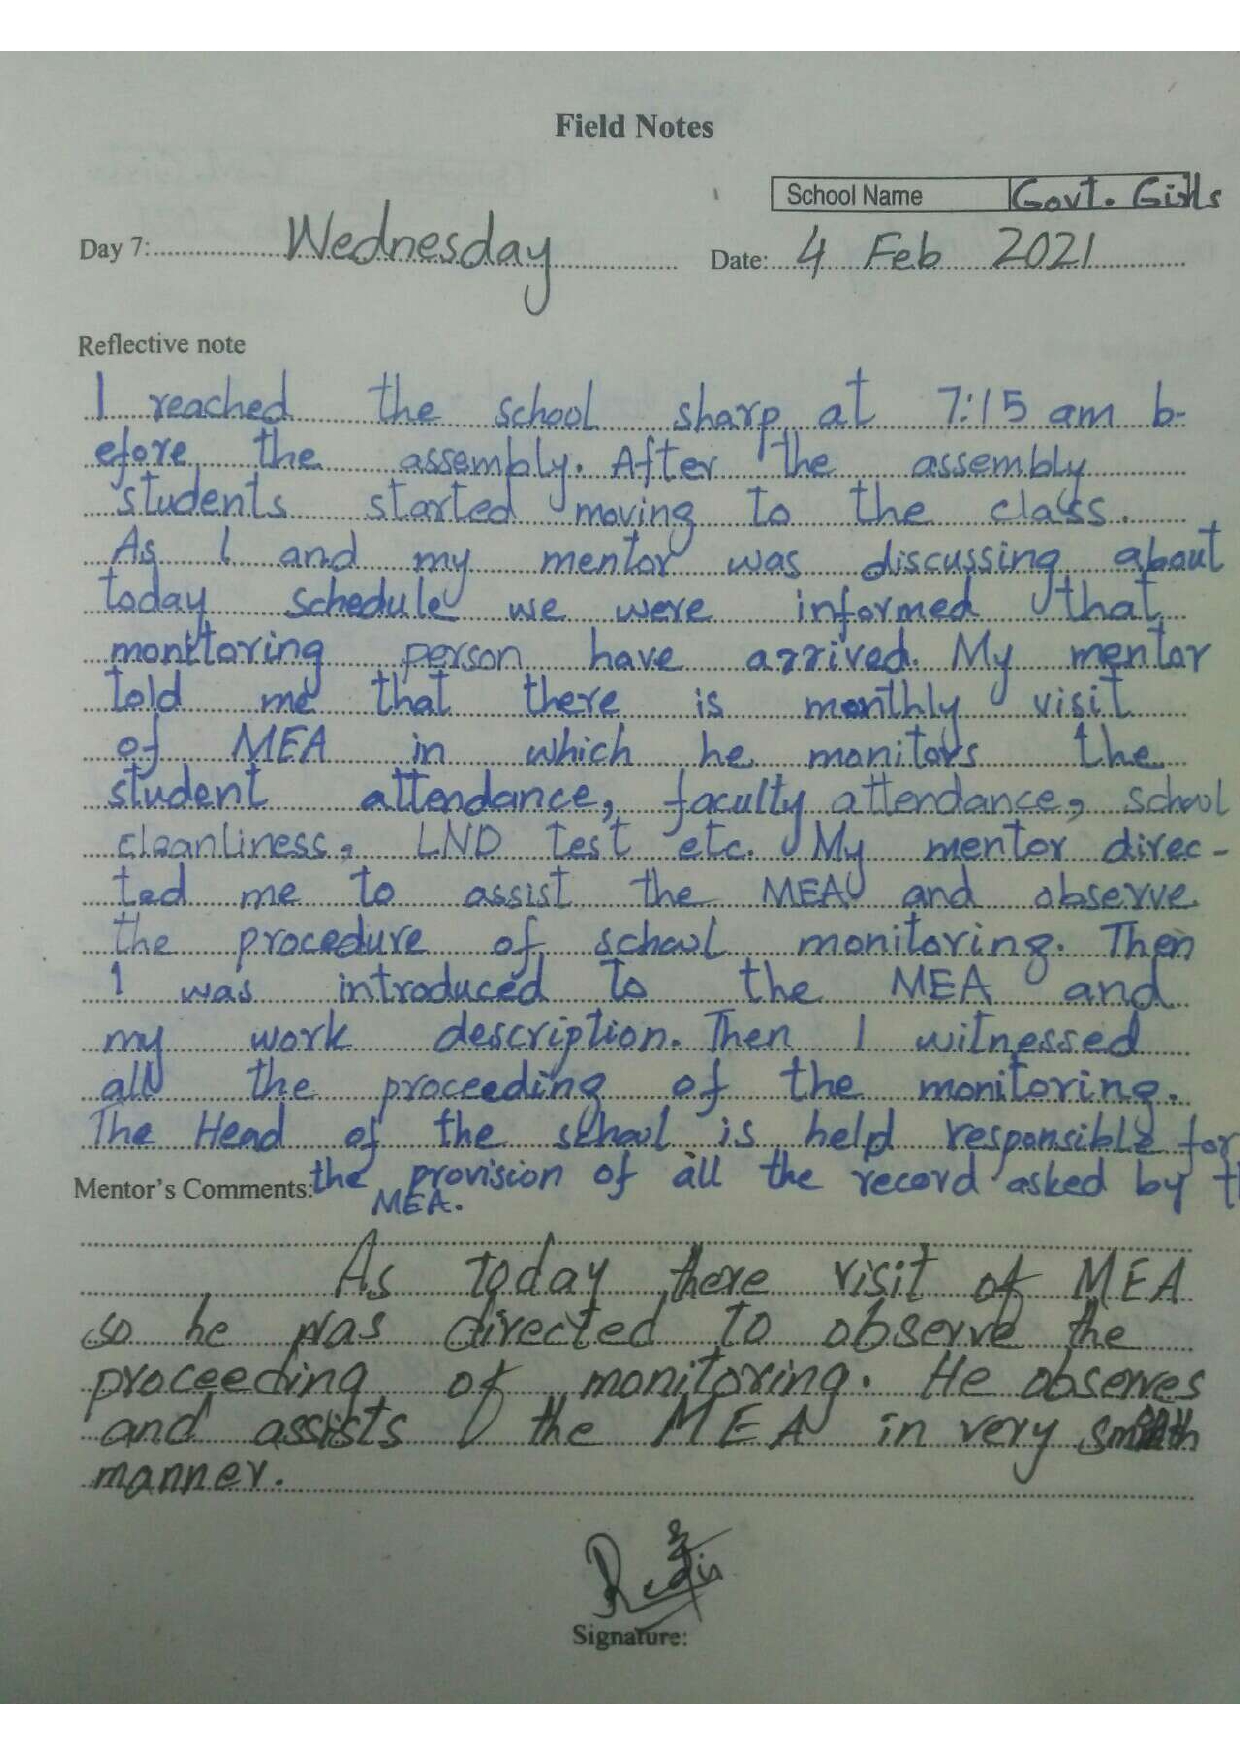 Field Notes
School Name Govt. Girls
Day 7: Wednesday Date: 4 Feb 2021
Reflective note
I reached the school sharp at 7:15 am b-
efore the assembly. After the assembly
students started moving to the class.
As I and my mentor was discussing about
today schedule we were informed that
monitoring person have arrived. My mentor
told me that there is monthly visit
of MEA in which he monitors the
student attendance, faculty attendance, school
cleanliness, LND test etc. My mentor direc-
ted me to assist the MEA and observe
the procedure of school monitoring. Then
I was introduced to the MEA and
my work description. Then I witnessed
all the proceeding of the monitoring.
The Head of the school is held responsible for
Mentor's Comments: the provision of all the record asked by th
MEA.
As today there visit of MEA
so he was directed to observe the
proceeding of monitoring. He observes
and assists the MEA in very
manner.
Signature: